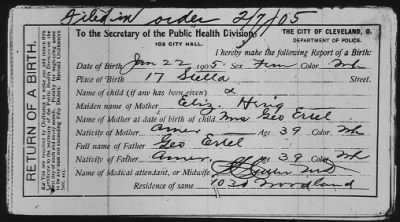 Filed in order 2/7/05
To the Secretary of the Public Health Division:
102 CITY HALL.
THE CITY OF CLEVELAND, O.
DEPARTMENT OF POLICE.
I hereby make the following Report of a Birth:
Date of Birth, Jan 22 1905 Sex fem Color Wh
Place of Birth 17 Stella Street.
Name of child (if any has been given) x
Maiden name of Mother Eliz. Hirig
Name of Mother at date of birth of child Mrs Geo Ertel
Nativity of Mother Amer. Age 39 Color Wh
Full name of Father Geo Ertel
Nativity of Father Amer. Age 39 Color Wh
Name of Medical attendant, or Midwife MD
Residence of same 1030 Woodland
RETURN OF A BIRTH.